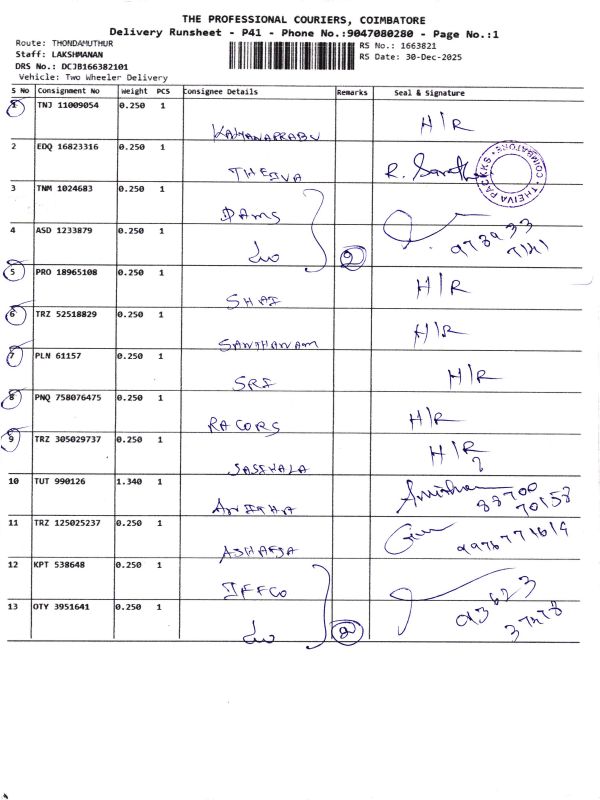 THE PROFESSIONAL COURIERS, COIMBATORE
Delivery Runsheet - P41 - Phone No.:9047080280 - Page No.:1
Route: THONDAMUTHUR
RS No.: 1663821
Staff: LAKSHMANAN
RS Date: 30-Dec-2025
DRS No.: DCJB166382101
Vehicle: Two Wheeler Delivery
S No Consignment No Weight PCS Consignee Details Remarks Seal & Signature
1 TNJ 11009054 0.250 1 H/R
2 EDQ 16823316 0.250 1 THEIVA R. COIMBATORE * THEIVA PACKKS *
3 TNM 1024683 0.250 1 DAMS
4 ASD 1233879 0.250 1 2
5 PRO 18965108 0.250 1 SHAI H/R
6 TRZ 52518829 0.250 1 SANTHANAM H/R
7 PLN 61157 0.250 1 SRI H/R
8 PNQ 758076475 0.250 1 RACORS H/R
9 TRZ 305029737 0.250 1 SASIKALA H/R
10 TUT 990126 1.340 1 ANITHA 88700 70158
11 TRZ 125025237 0.250 1 9976771614
12 KPT 538648 0.250 1 IFFCO
13 OTY 3951641 0.250 1 2